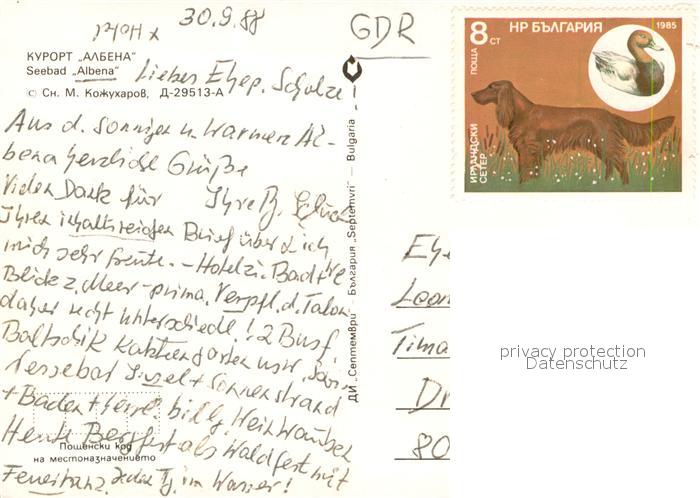 x Hotel
30.9.88
GDR
КУРОРТ „АЛБЕНА"
Seebad „Albena"
© Сн. М. Кожухаров, Д-29513-А
Liebes Ehep. Scholze!
Aus d. sonnigen u. warmen Al-
bena herzliche Grüße
Vielen Dank für Ihre
Ihren inhaltsreichen Brief über d. ich
mich sehr freute. – Hotelzi. Bad
Blick z. Meer – prima. Verpfl. d. Talon
daher recht unterschiedl.! 2 Busf.
Baltschik Kakteengarten usw.
Nessebar Insel + Sonnenstrand
+ Baden + billg. Weintrauben
Heute Bergfest als Waldfest mit
Feuertanz. Jeden Tg. im Wasser!
Пощенски код
на местоназначението
ДИ „Септември" – България „Septemvri" – Bulgaria
НР БЪЛГАРИЯ
1985
8 СТ
ПОЩА
ИРЛАНДСКИ
СЕТЕР
Ehe
Leon
Tima
Dr
80
privacy protection
Datenschutz